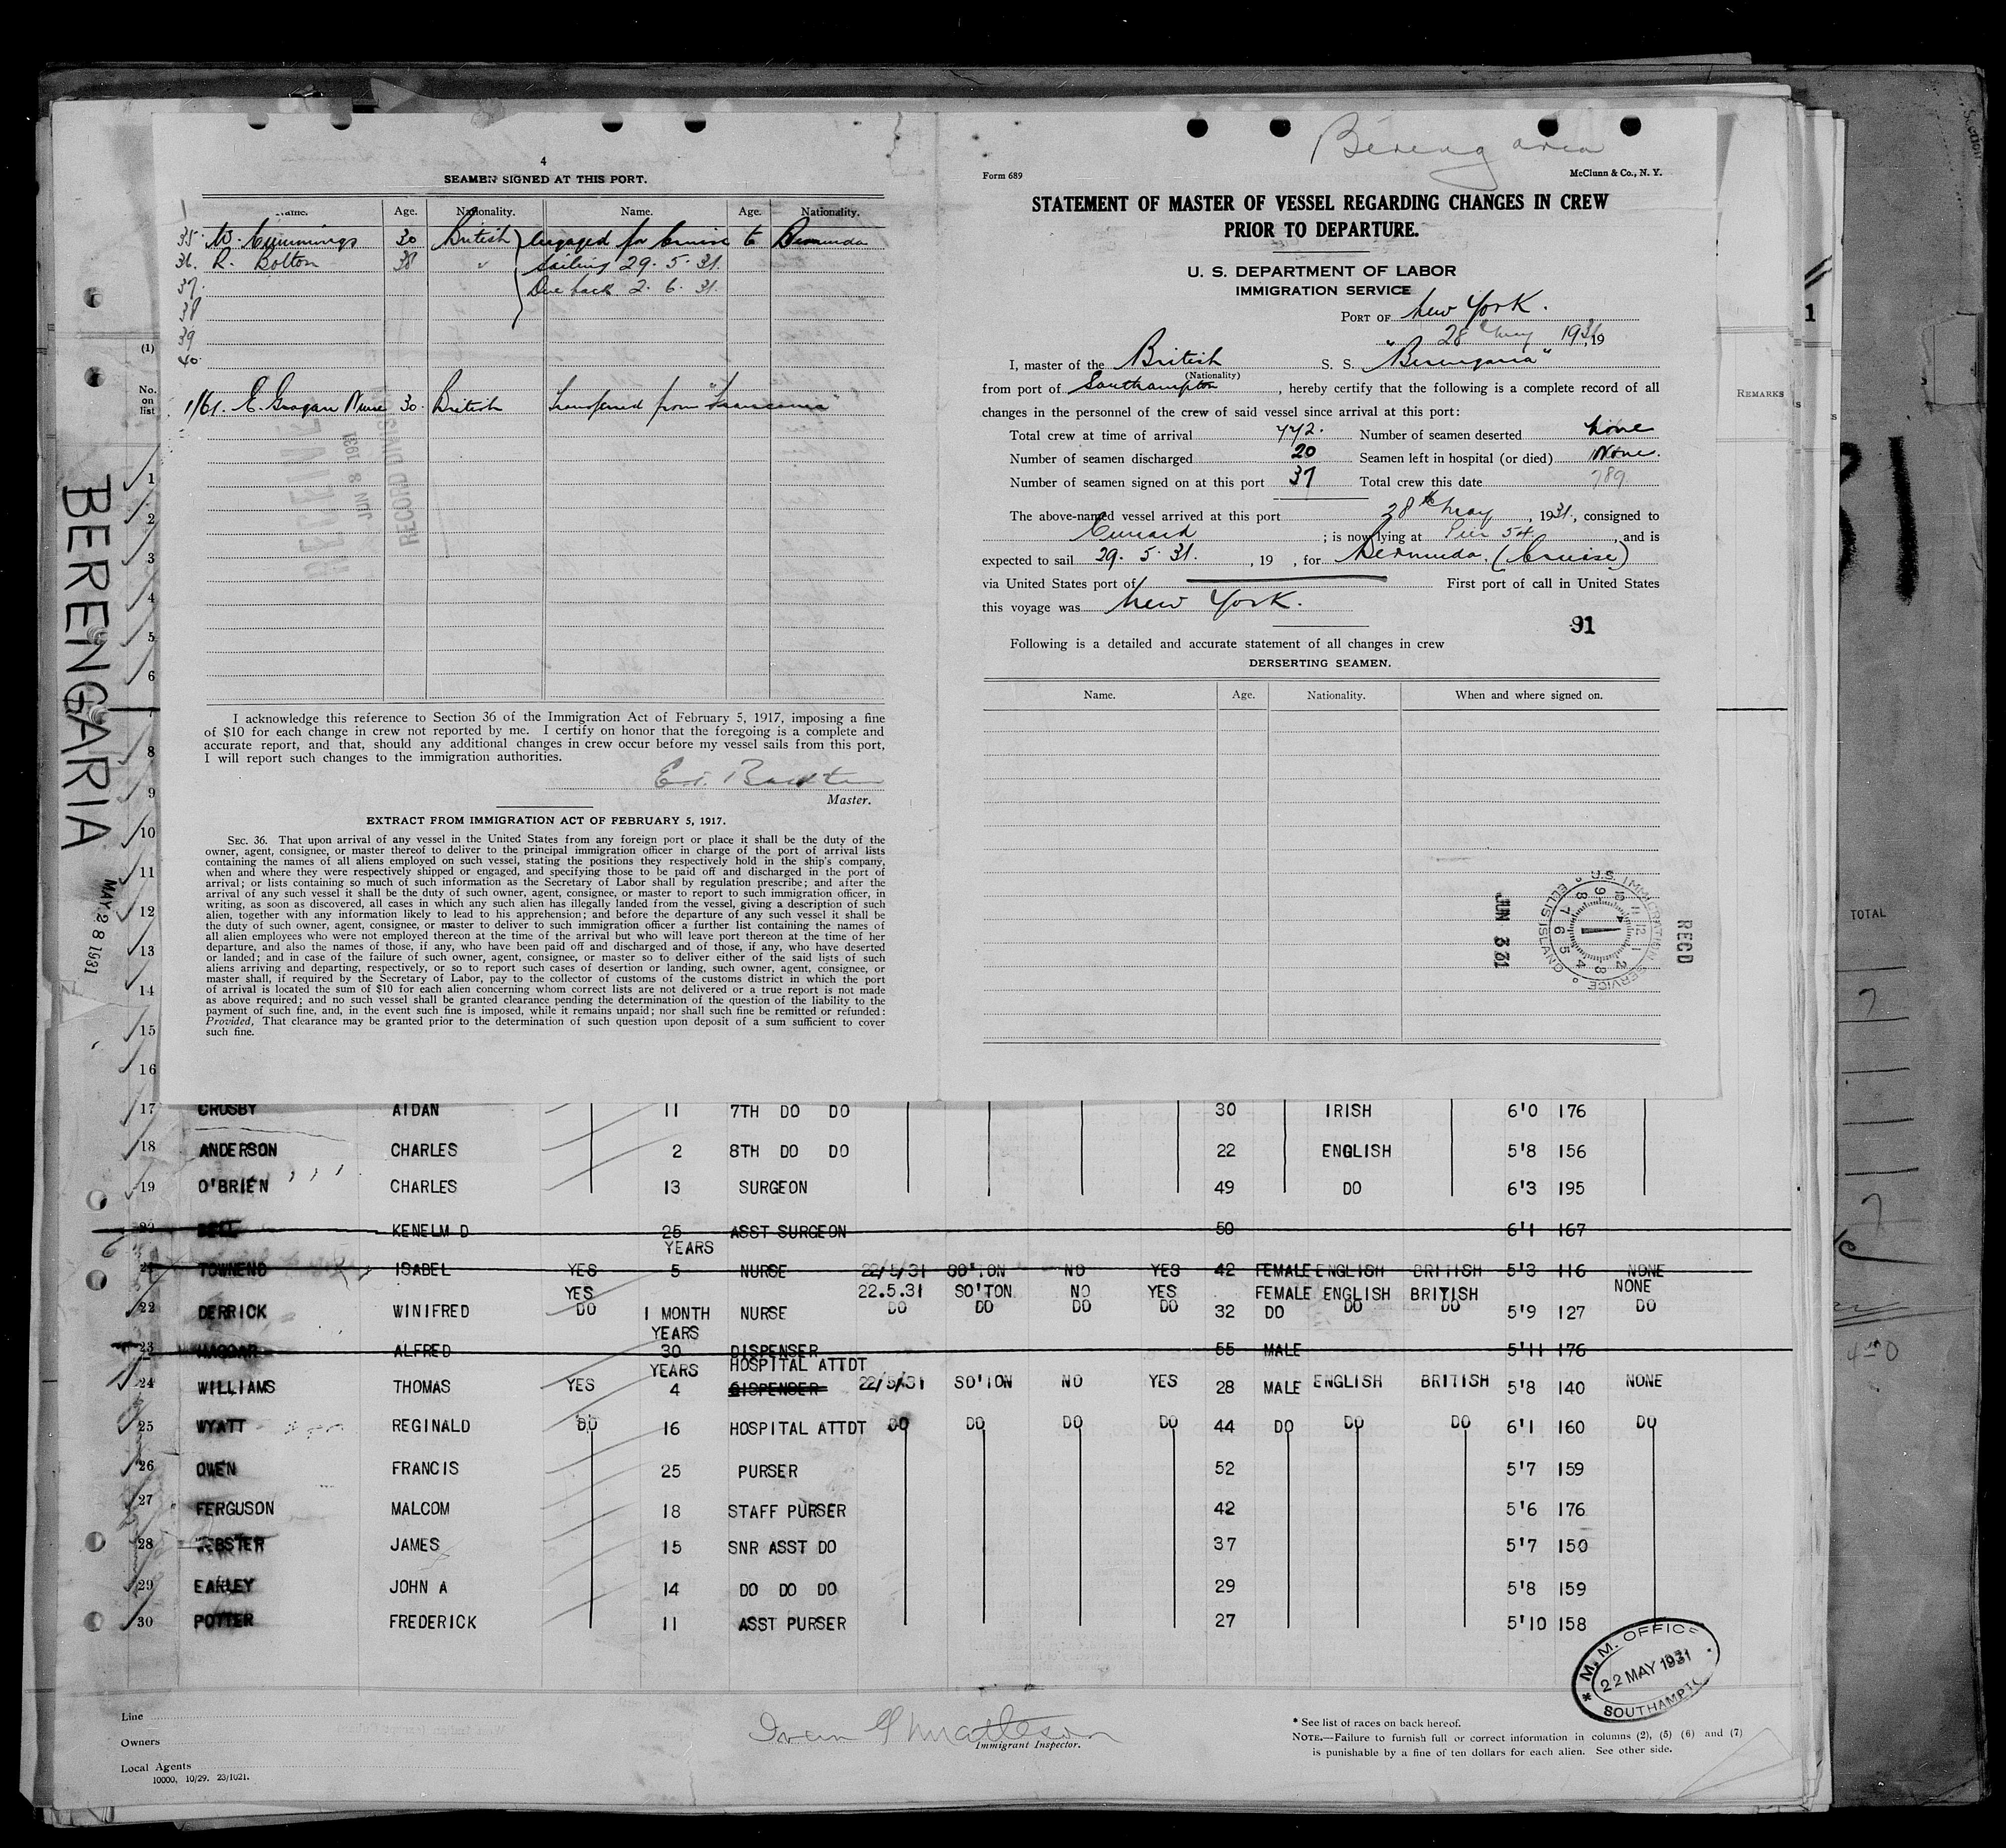 4
SEAMEN SIGNED AT THIS PORT.
Name. Age. Nationality. Name. Age. Nationality.
35. W. Cummings 30 British Engaged for Cruise to Bermuda
36. R. Bolton 38 " sailing 29. 5. 31.
37. Due back 2. 6. 31.
38
39
40.
1/61. E. Grogan Nurse 30. British Transferred from "Franconia"
RECORD DIVISION
JUN 8 1931
I acknowledge this reference to Section 36 of the Immigration Act of February 5, 1917, imposing a fine
of $10 for each change in crew not reported by me. I certify on honor that the foregoing is a complete and
accurate report, and that, should any additional changes in crew occur before my vessel sails from this port,
I will report such changes to the immigration authorities.
Master.
EXTRACT FROM IMMIGRATION ACT OF FEBRUARY 5, 1917.
SEC. 36. That upon arrival of any vessel in the United States from any foreign port or place it shall be the duty of the
owner, agent, consignee, or master thereof to deliver to the principal immigration officer in charge of the port of arrival lists
containing the names of all aliens employed on such vessel, stating the positions they respectively hold in the ship's company,
when and where they were respectively shipped or engaged, and specifying those to be paid off and discharged in the port of
arrival; or lists containing so much of such information as the Secretary of Labor shall by regulation prescribe; and after the
arrival of any such vessel it shall be the duty of such owner, agent, consignee, or master to report to such immigration officer, in
writing, as soon as discovered, all cases in which any such alien has illegally landed from the vessel, giving a description of such
alien, together with any information likely to lead to his apprehension; and before the departure of any such vessel it shall be
the duty of such owner, agent, consignee, or master to deliver to such immigration officer a further list containing the names of
all alien employees who were not employed thereon at the time of the arrival but who will leave port thereon at the time of her
departure, and also the names of those, if any, who have been paid off and discharged and of those, if any, who have deserted
or landed; and in case of the failure of such owner, agent, consignee, or master so to deliver either of the said lists of such
aliens arriving and departing, respectively, or so to report such cases of desertion or landing, such owner, agent, consignee, or
master shall, if required by the Secretary of Labor, pay to the collector of customs of the customs district in which the port
of arrival is located the sum of $10 for each alien concerning whom correct lists are not delivered or a true report is not made
as above required; and no such vessel shall be granted clearance pending the determination of the question of the liability to the
payment of such fine, and, in the event such fine is imposed, while it remains unpaid; nor shall such fine be remitted or refunded:
Provided, That clearance may be granted prior to the determination of such question upon deposit of a sum sufficient to cover
such fine.
Berengaria
Form 689 McClunn & Co., N. Y.
STATEMENT OF MASTER OF VESSEL REGARDING CHANGES IN CREW
PRIOR TO DEPARTURE.
U. S. DEPARTMENT OF LABOR
IMMIGRATION SERVICE
PORT OF New York.
28th May 1931, 19
I, master of the British S. S. "Berengaria"
(Nationality)
from port of Southampton, hereby certify that the following is a complete record of all
changes in the personnel of the crew of said vessel since arrival at this port:
Total crew at time of arrival 772. Number of seamen deserted None
Number of seamen discharged 20 Seamen left in hospital (or died) None.
Number of seamen signed on at this port 37 Total crew this date 789
The above-named vessel arrived at this port 28th May, 1931, consigned to
Cunard ; is now lying at Pier 54, and is
expected to sail 29. 5. 31., 19 , for Bermuda. (Cruise)
via United States port of First port of call in United States
this voyage was New York.
91
Following is a detailed and accurate statement of all changes in crew
DERSERTING SEAMEN.
Name. Age. Nationality. When and where signed on.
RECD
U.S. IMMIGRATION SERVICE ELLIS ISLAND
JUN 3 31
REMARKS
TOTAL
1
BERENGARIA
MAY 28 1931
(1)
No. on list
1
2
3
4
5
6
7
8
9
10
11
12
13
14
15
16
17 CROSBY AIDAN 11 7TH DO DO 30 IRISH 6'0 176
18 ANDERSON CHARLES 2 8TH DO DO 22 ENGLISH 5'8 156
19 O'BRIEN CHARLES 13 SURGEON 49 DO 6'3 195
20 BELL KENELM D 25 ASST SURGEON 50 6'1 167
YEARS
21 TOWNEND ISABEL YES 5 NURSE 22/5/31 SO'TON NO YES 42 FEMALE ENGLISH BRITISH 5'3 116 NONE
YES 22.5.31 SO'TON NO YES FEMALE ENGLISH BRITISH NONE
22 DERRICK WINIFRED DO 1 MONTH NURSE DO DO DO DO 32 DO DO DO 5'9 127 DO
YEARS
23 HAGGAR ALFRED 30 DISPENSER 55 MALE 5'11 176
YEARS HOSPITAL ATTDT
24 WILLIAMS THOMAS YES 4 DISPENSER 22/5/31 SO'TON NO YES 28 MALE ENGLISH BRITISH 5'8 140 NONE
25 WYATT REGINALD DO 16 HOSPITAL ATTDT DO DO DO DO 44 DO DO DO 6'1 160 DO
26 OWEN FRANCIS 25 PURSER 52 5'7 159
27 FERGUSON MALCOM 18 STAFF PURSER 42 5'6 176
28 WEBSTER JAMES 15 SNR ASST DO 37 5'7 150
29 EARLEY JOHN A 14 DO DO DO 29 5'8 159
30 POTTER FREDERICK 11 ASST PURSER 27 5'10 158
M. M. OFFICE
22 MAY 1931
SOUTHAMPTO
Line
Owners
Local Agents
10000, 10/29. 23/1021.
Ivan G Matteson
Immigrant Inspector.
* See list of races on back hereof.
NOTE.—Failure to furnish full or correct information in columns (2), (5) (6) and (7)
is punishable by a fine of ten dollars for each alien. See other side.